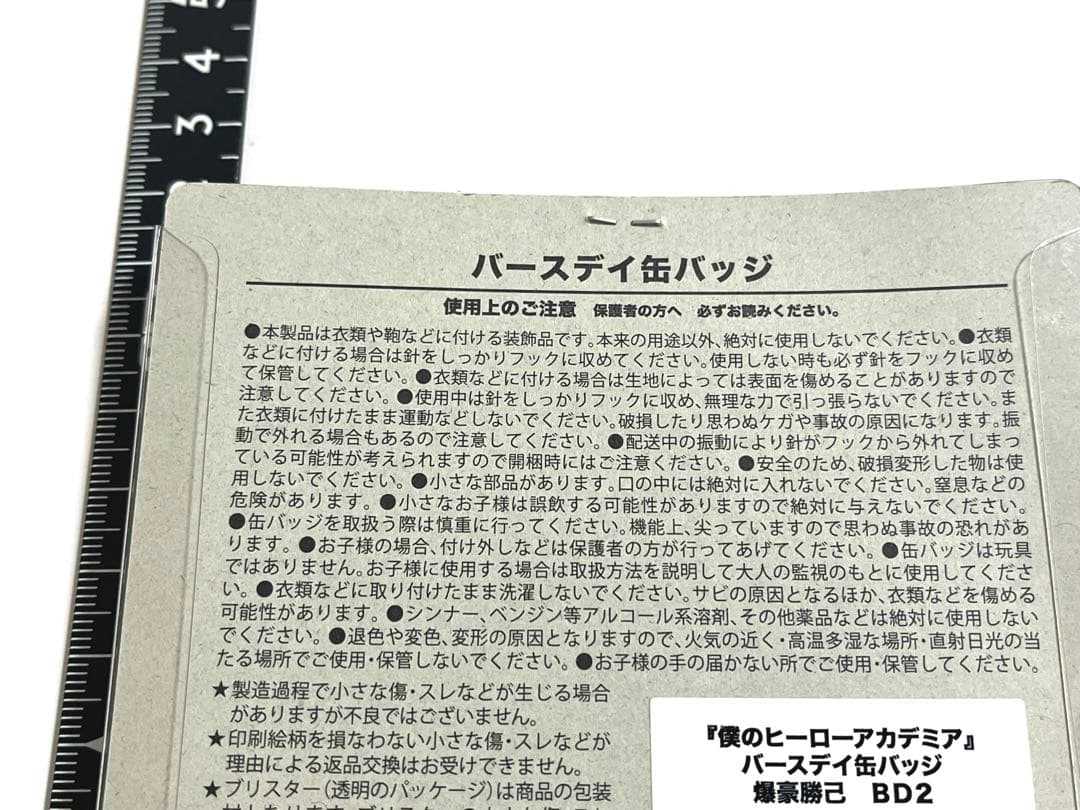 4
3
バースデイ缶バッジ
使用上のご注意　保護者の方へ　必ずお読みください。
●本製品は衣類や鞄などに付ける装飾品です。本来の用途以外、絶対に使用しないでください。●衣類
などに付ける場合は針をしっかりフックに収めてください。使用しない時も必ず針をフックに収め
て保管してください。●衣類などに付ける場合は生地によっては表面を傷めることがありますので
注意してください。●使用中は針をしっかりフックに収め、無理な力で引っ張らないでください。ま
た衣類に付けたまま運動などしないでください。破損したり思わぬケガや事故の原因になります。振
動で外れる場合もあるので注意してください。●配送中の振動により針がフックから外れてしまっ
ている可能性が考えられますので開梱時にはご注意ください。●安全のため、破損変形した物は使
用しないでください。●小さな部品があります。口の中には絶対に入れないでください。窒息などの
危険があります。●小さなお子様は誤飲する可能性がありますので絶対に与えないでください。
●缶バッジを取扱う際は慎重に行ってください。機能上、尖っていますので思わぬ事故の恐れがあ
ります。●お子様の場合、付け外しなどは保護者の方が行ってあげてください。●缶バッジは玩具
ではありません。お子様に使用する場合は取扱方法を説明して大人の監視のもとに使用してくださ
い。●衣類などに取り付けたまま洗濯しないでください。サビの原因となるほか、衣類などを傷める
可能性があります。●シンナー、ベンジン等アルコール系溶剤、その他薬品などは絶対に使用しない
でください。●退色や変色、変形の原因となりますので、火気の近く・高温多湿な場所・直射日光の当
たる場所でご使用・保管しないでください。●お子様の手の届かない所でご使用・保管してください。
★製造過程で小さな傷・スレなどが生じる場合
がありますが不良ではございません。
★印刷絵柄を損なわない小さな傷・スレなどが
理由による返品交換はお受けできません。
★ブリスター（透明のパッケージ）は商品の包装
『僕のヒーローアカデミア』
バースデイ缶バッジ
爆豪勝己　BD2